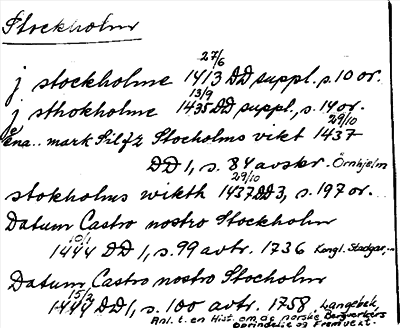 Stockholm
27/6
j stockholme 1413 DD suppl. s. 10 or.
13/9
j sthokholme 1435 DD suppl., s. 14 or.
29/10
ena.. mark Silfz Stocholms vikt 1437
DD 1, s. 84 avskr. Örnhjelm
29/10
stokholms wikth 1437 DD 3, s. 197 or.
Datum Castro nostro Stockholm
10/1
1444 DD 1, s. 99 avtr. 1736 Kongl. Stadgar,...
Datum Castro nostro Stocholm
15/2
1444 DD 1, s. 100 avtr. 1758 Langebek,
Anl. t. en Hist. om de norske Bergverkers
Oprindelse og Fremvext.